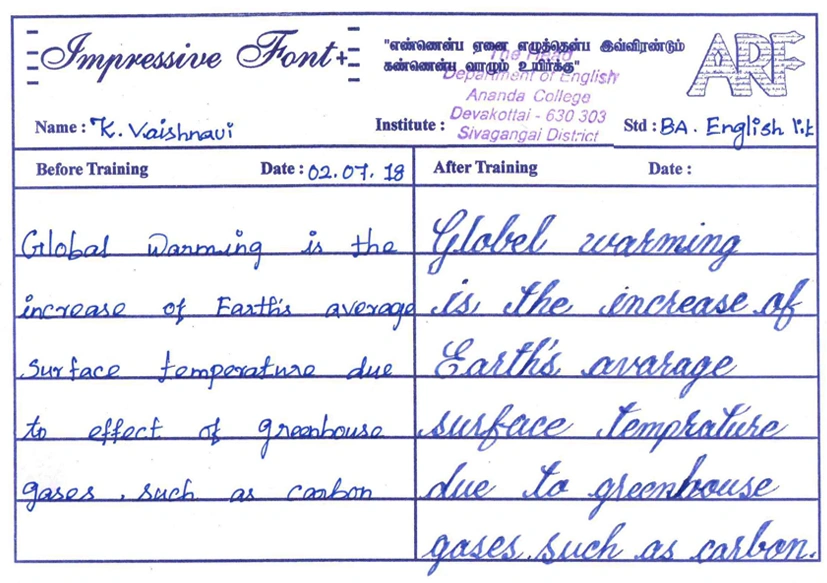 Impressive Font+
"எண்ணென்ப ஏனை எழுத்தென்ப இவ்விரண்டும்
கண்ணென்ப வாழும் உயிர்க்கு"
ARF
The Head
Department of English
Ananda College
Devakottai - 630 303
Sivagangai District
Name : K. Vaishnavi
Institute :
Std : BA. English lit
Before Training Date : 02.07.18
Global Warming is the
increase of Earth's average
surface temperature due
to effect of greenhouse
gases, such as carbon
After Training Date :
Globel warming
is the increase of
Earth's avarage
surface temprature
due to greenhouse
gases such as carbon.